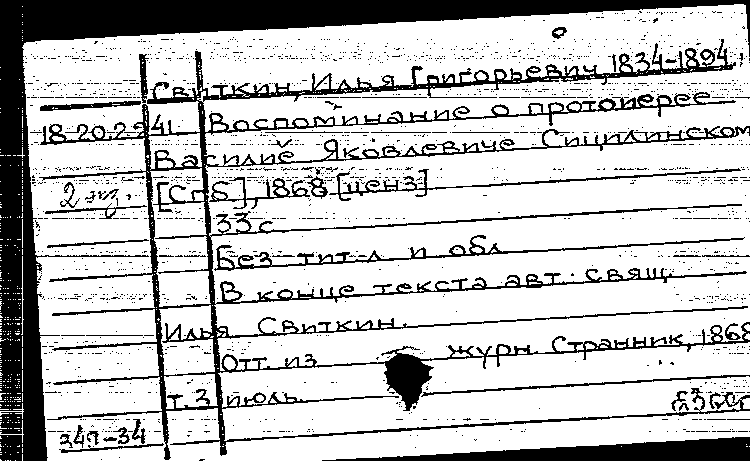 Свиткин, Илья Григорьевич, 1834-1894.
18.20.2.241. Воспоминание о протоиерее
Василие Яковлевиче Сицилинском
2 экз. [СПБ], 1868 [ценз]
33 с
Без тит-л и обл
В конце текста авт.: свящ.
Илья Свиткин.
Отт. из журн. Странник, 1868
т. 3 июль.
34п-34